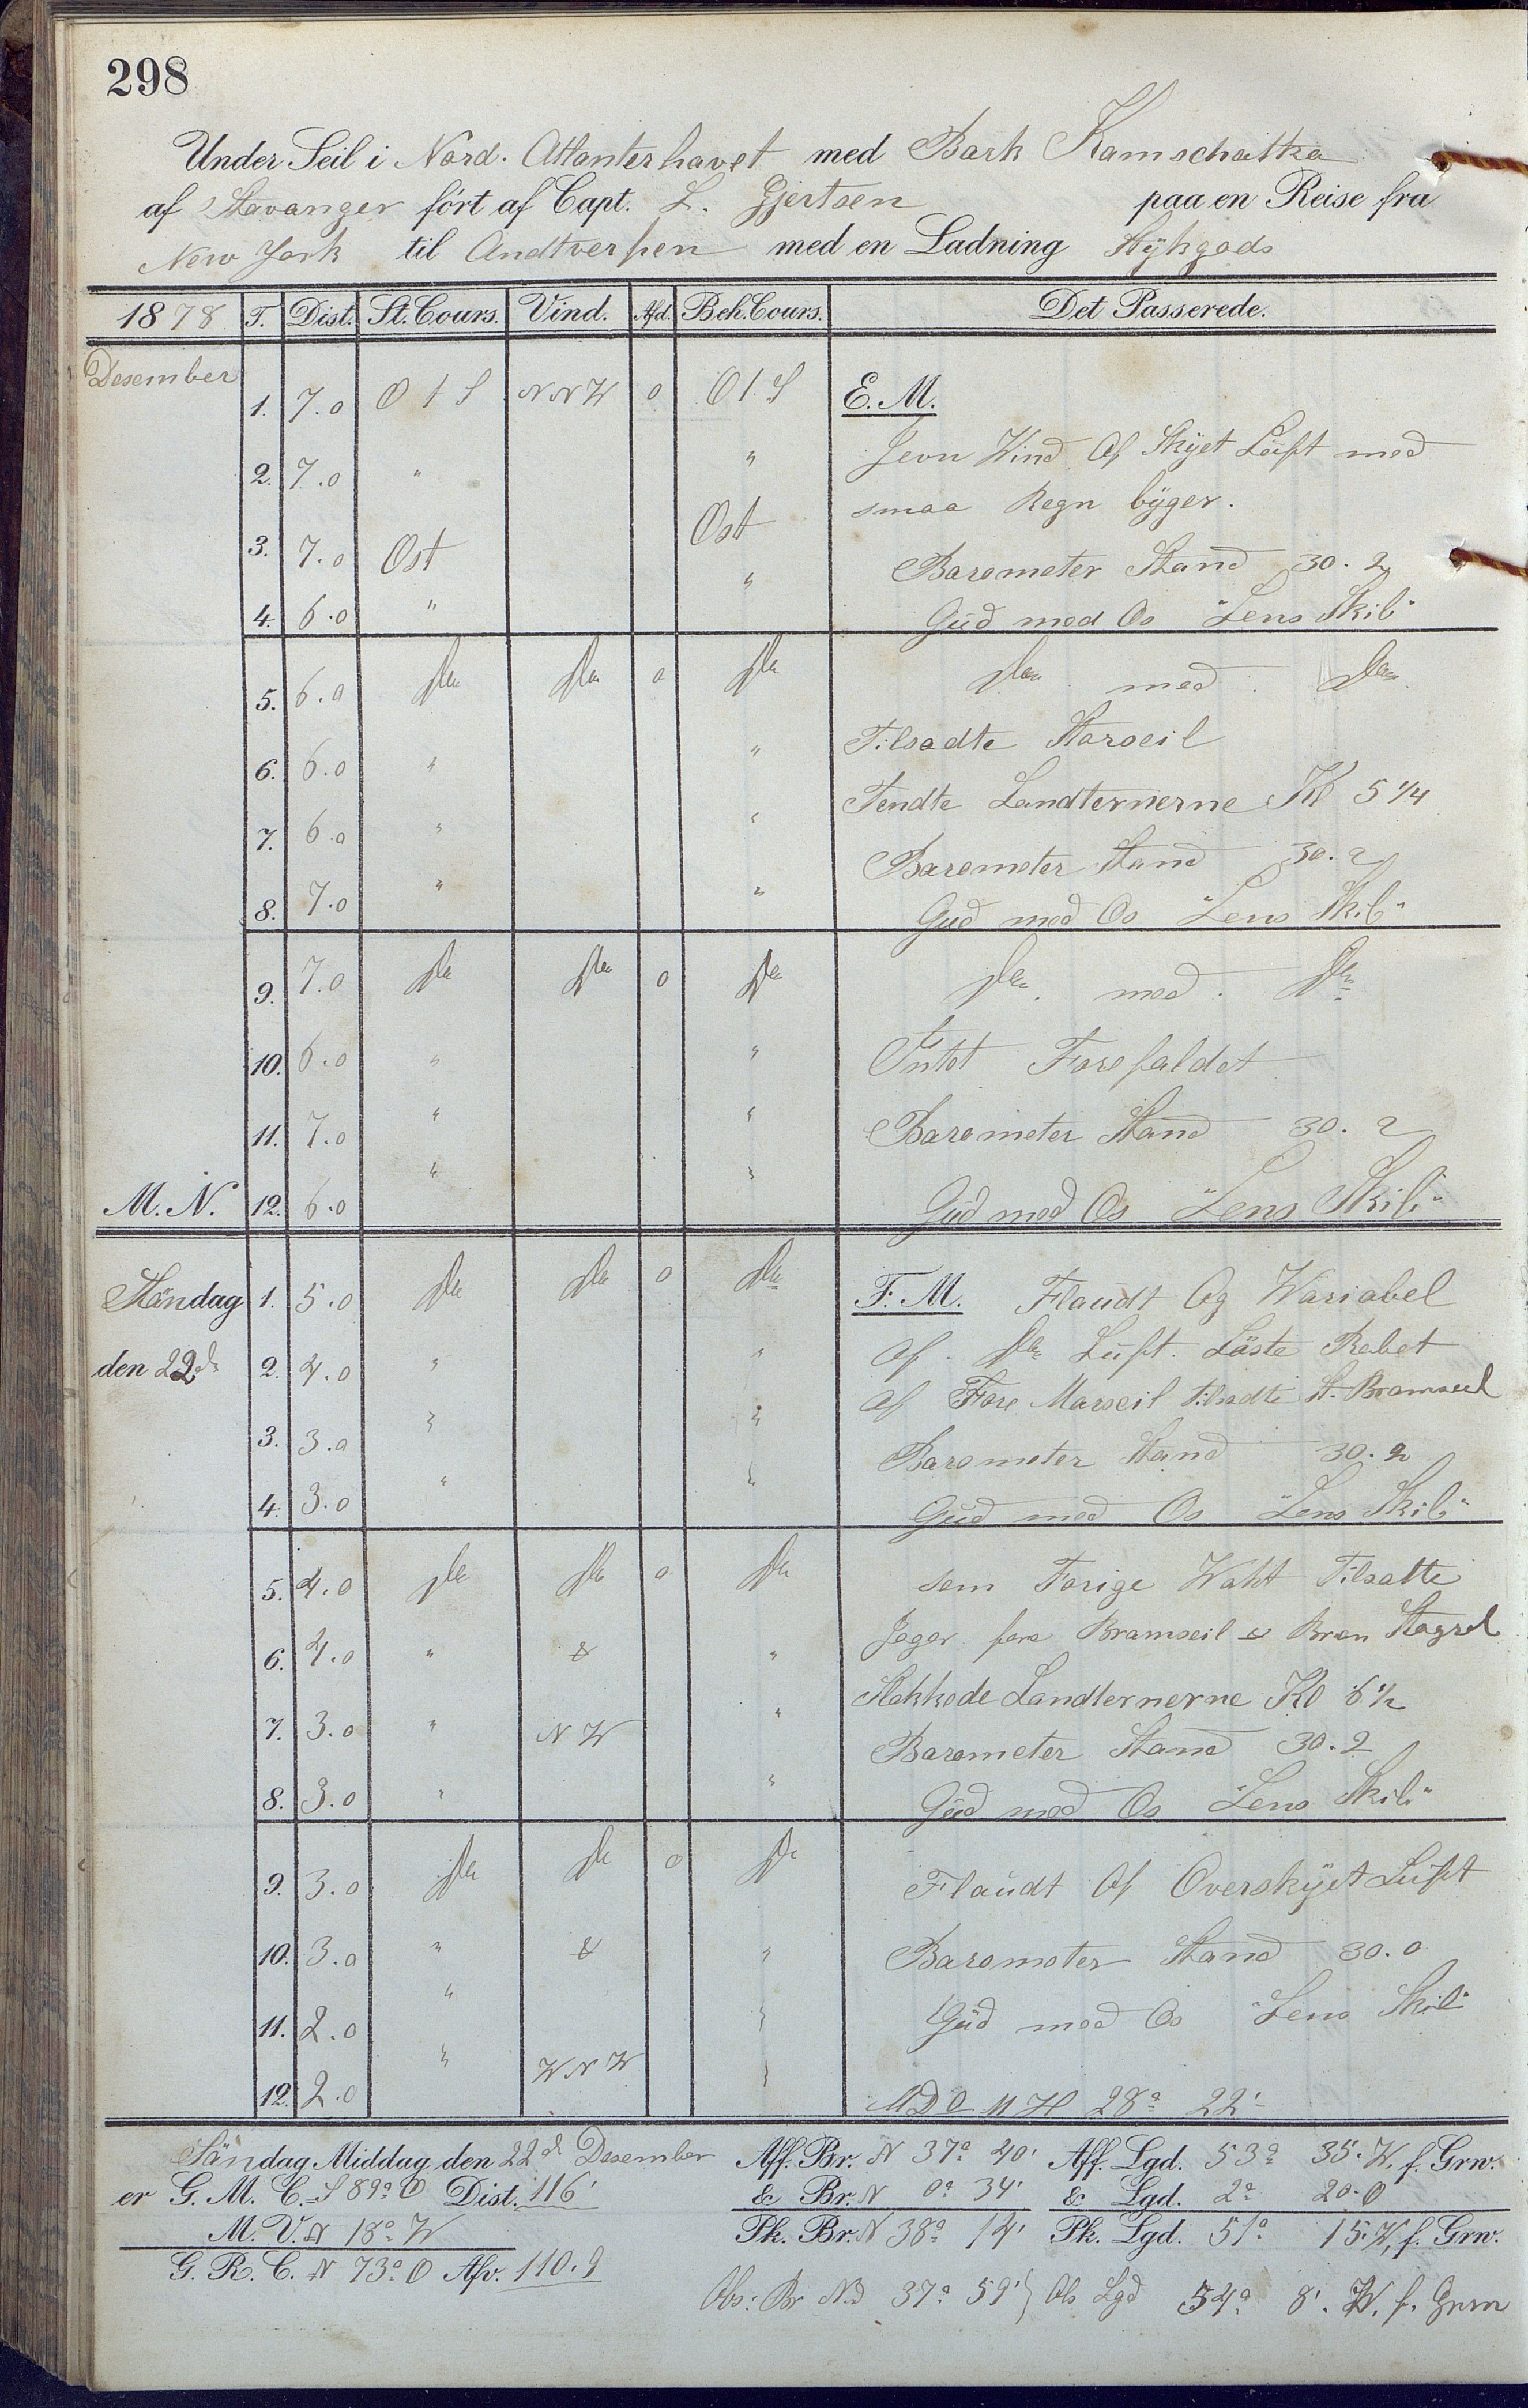 298
Under Seil i Nord. Attanterhavet med Bark Kamschatka
af Stavanger ført af Capt. L. Gjertsen paa en Reise fra
New York til Andtverpen med en Ladning Stykgods
1878 T. Dist. St. Cours. Vind. Afd. Beh. Cours. Det Passerede.
Desember
1. 7.0 O t S NNW 0 O t S E. M.
2. 7.0 " " Jevn Wind Af Skÿet Luft med
smaa Regn bÿger.
3. 7.0 Ost Ost Barometer Stand 30.2
4. 6.0 " " Gud med Os "Lens Skib"
5. 6.0 do do 0 do do med do
6. 6.0 " " Tilsadte Storseil
7. 6.0 " " Tendte Landternerne Kl 5 1/4
Barometer Stand 30.2
8. 7.0 " " Gud med Os "Lens Skib"
9. 7.0 do do 0 do do med do
10. 6.0 " " Intet Forefaldet
11. 7.0 " " Barometer Stand 30.2
M. N. 12. 6.0 " " Gud med Os "Lens Skib"
Søndag 1. 5.0 do do 0 do F. M. Flaudt Og Wariabel
den 22d 2. 4.0 " " Af do Luft. Løste Rebet
af Fore Marseil tilsadte St. Bramseil
3. 3.0 " " Barometer Stand 30.2
4. 3.0 " " Gud med Os "Lens Skib"
5. 4.0 do do 0 do som Forige Wakt Tilsatte
6. 4.0 " & " Jager fore Bramseil & Bram Stagsel
7. 3.0 " NW " Slokkede Landternerne Kl 6 1/2
Barometer Stand 30.2
8. 3.0 " " Gud med Os "Lens Skib"
9. 3.0 do do 0 do Flaudt Af Overskÿet Luft
10. 3.0 " & " Barometer Stand 30.0
11. 2.0 " " Gud med Os "Lens Skib"
12. 2.0 " WNW " 28° 22'
Søndag Middag den 22d Desember Aff. Br. N 37° 40' Aff. Lgd. 53° 35' W. f. Grw.
er G. M. C. S 89° O Dist. 116' & Br. N 0° 34' & Lgd. 2° 20' O
M. V. N 18° W Pk. Br. N 38° 14' Pk. Lgd. 51° 15' W, f. Grw.
G. R. C. N 73° O Afv. 110.9
Obs: Br Nd 37° 59' } Ob Lgd 54° 8' W. f. Grw